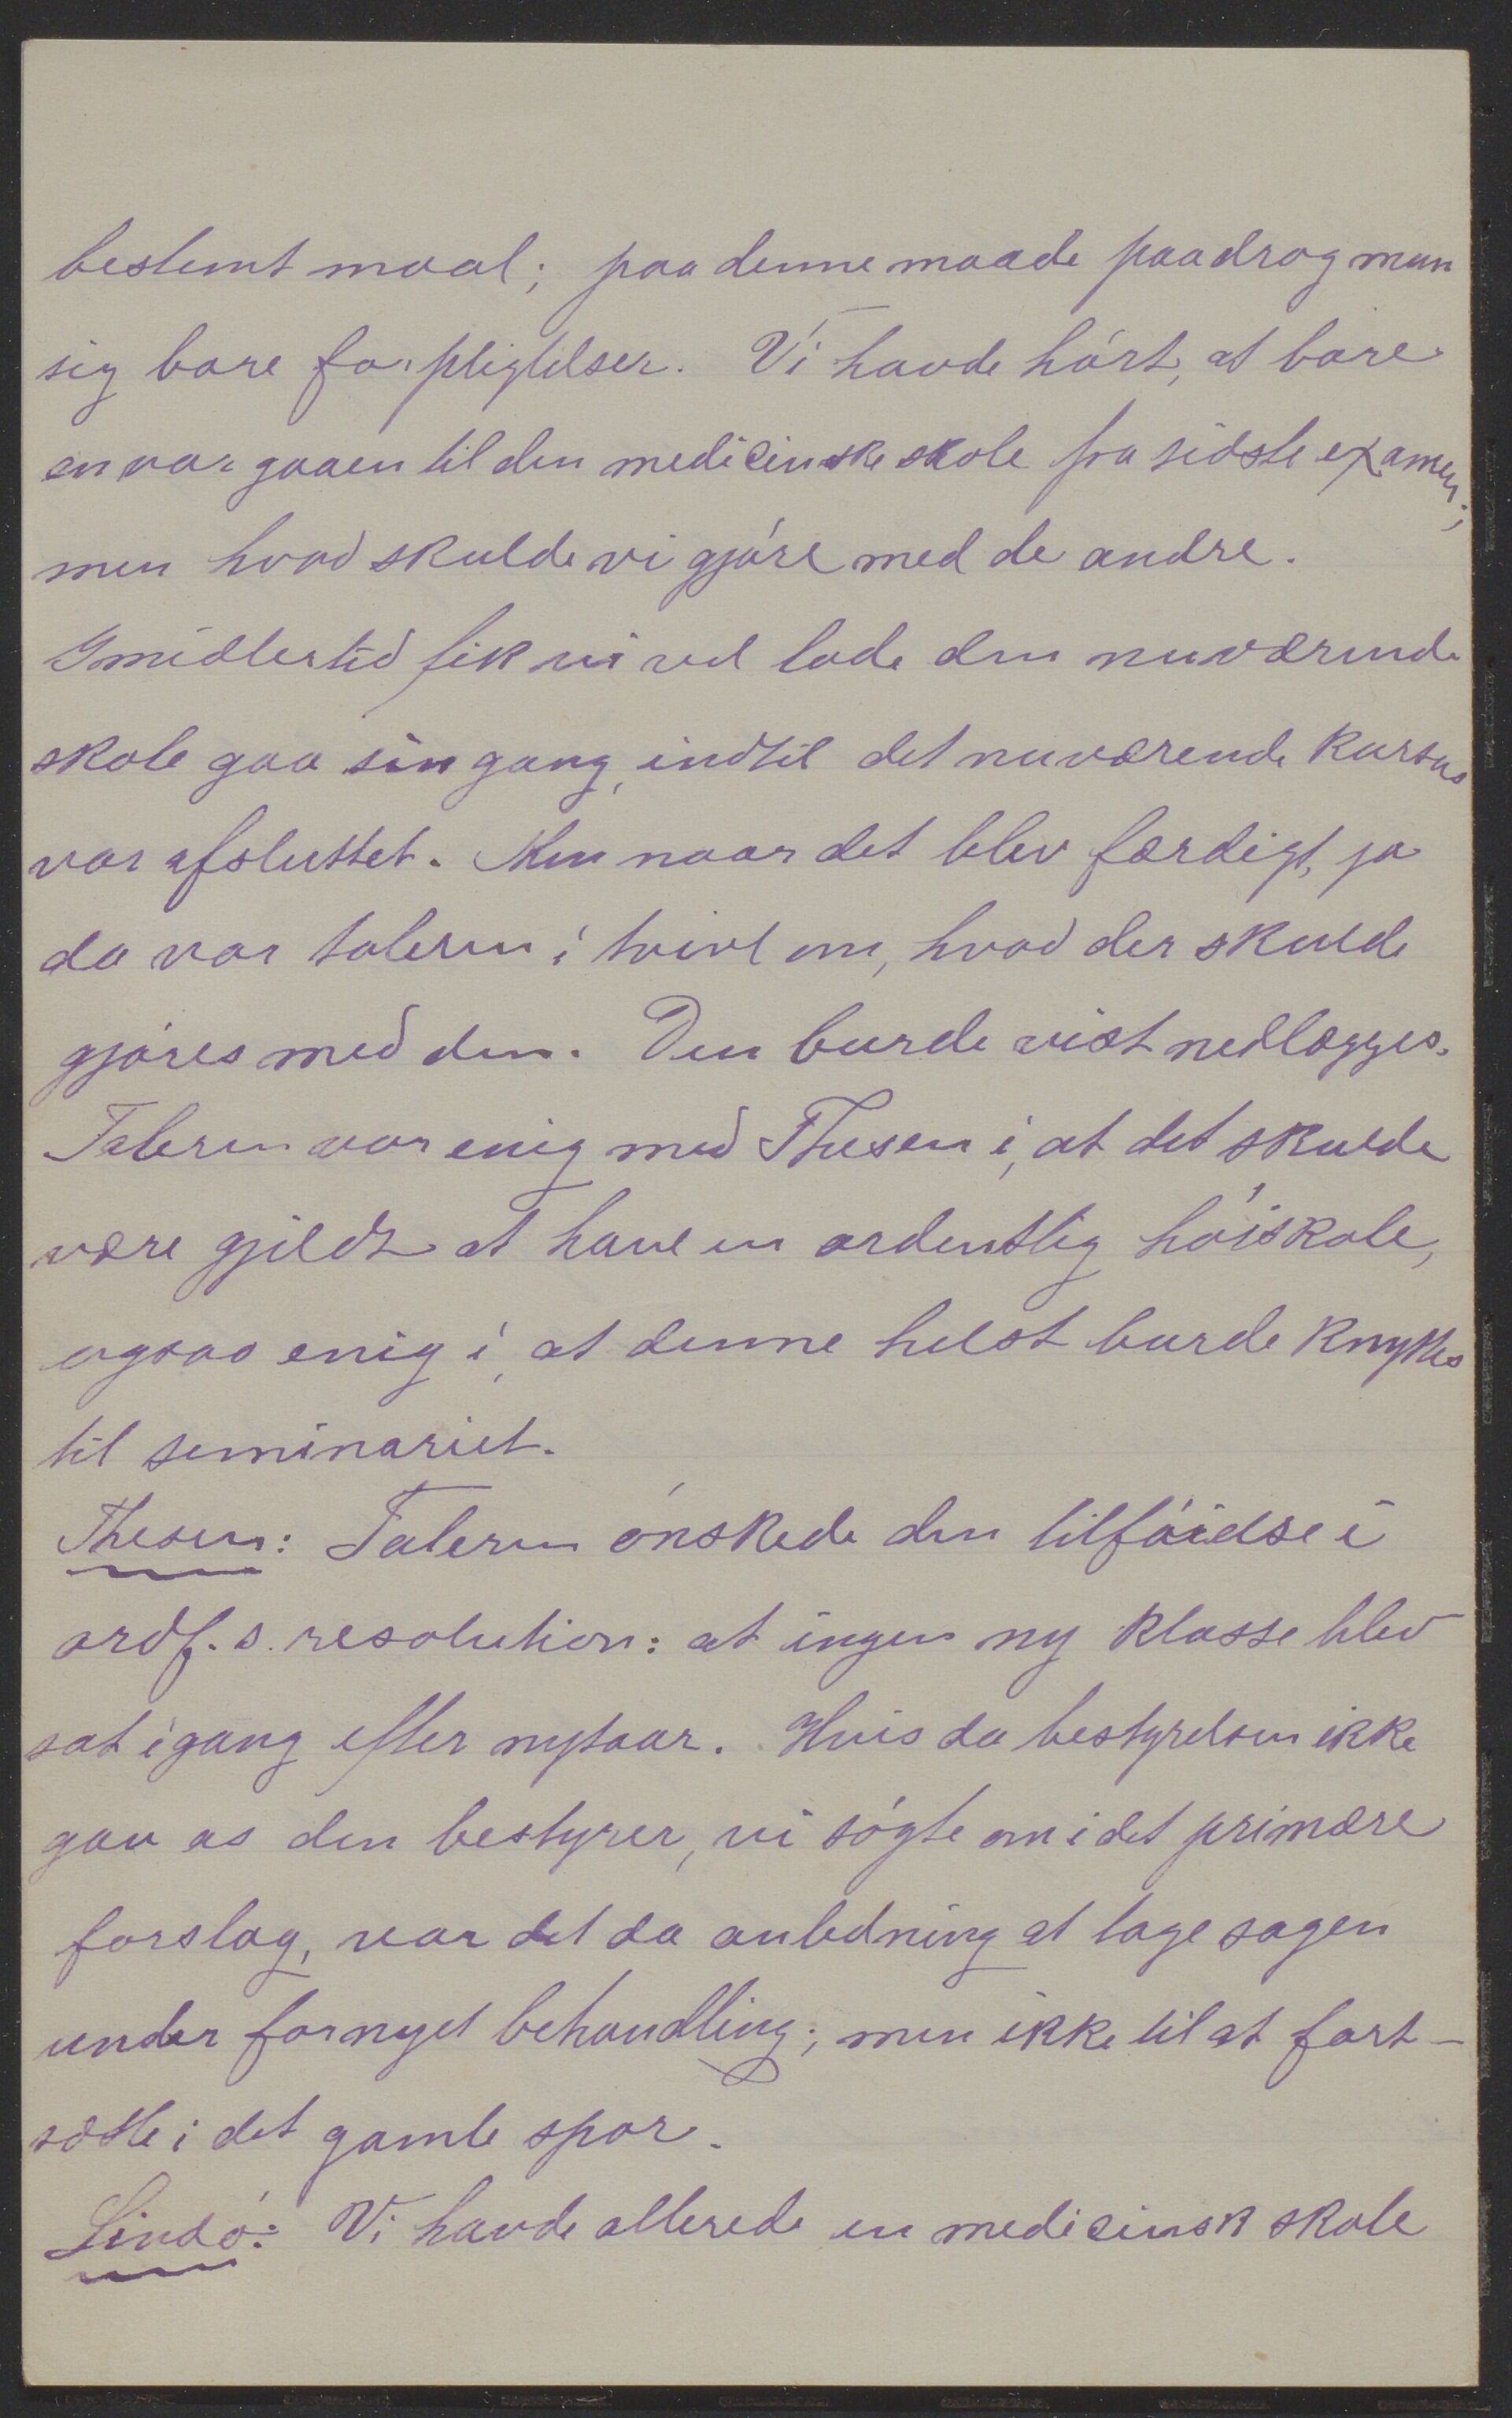 bestemt maal; paa denne maade paadrog man
sig bare forpligtelser. Vi havde hórt, at bare
en var gaaen til den medicinske skole fra sidste examen;
men hvad skulde vi gjóre med de andre.
Imidlertid fik vi vel lade den nuværende
skole gaa sin gang, indtil det nuværende kursus
var afsluttet. Men naar det blev færdigt, ja
da var taleren i tvivl om, hvad der skulde
gjóres med den. Den burde vist nedlægges.
Taleren var enig med Thesen i, at det skulde
være gjildt at have en ordentlig hóiskole,
ogsaa enig i, at denne helst burde knyttes
til seminariet.
Thesen: Taleren ónskede den tilfóielse i
ordf.s. resolution: at ingen ny klasse blev
sat igang efter nytaar. Hvis da bestyrelsen ikke
gav os den bestyrer, vi sógte om i det primære
forslag, var det da anledning at tage sagen
under fornyet behandling; men ikke til at fort-
sætte i det gamle spor.
Lindó: Vi havde allerede en medicinsk skole